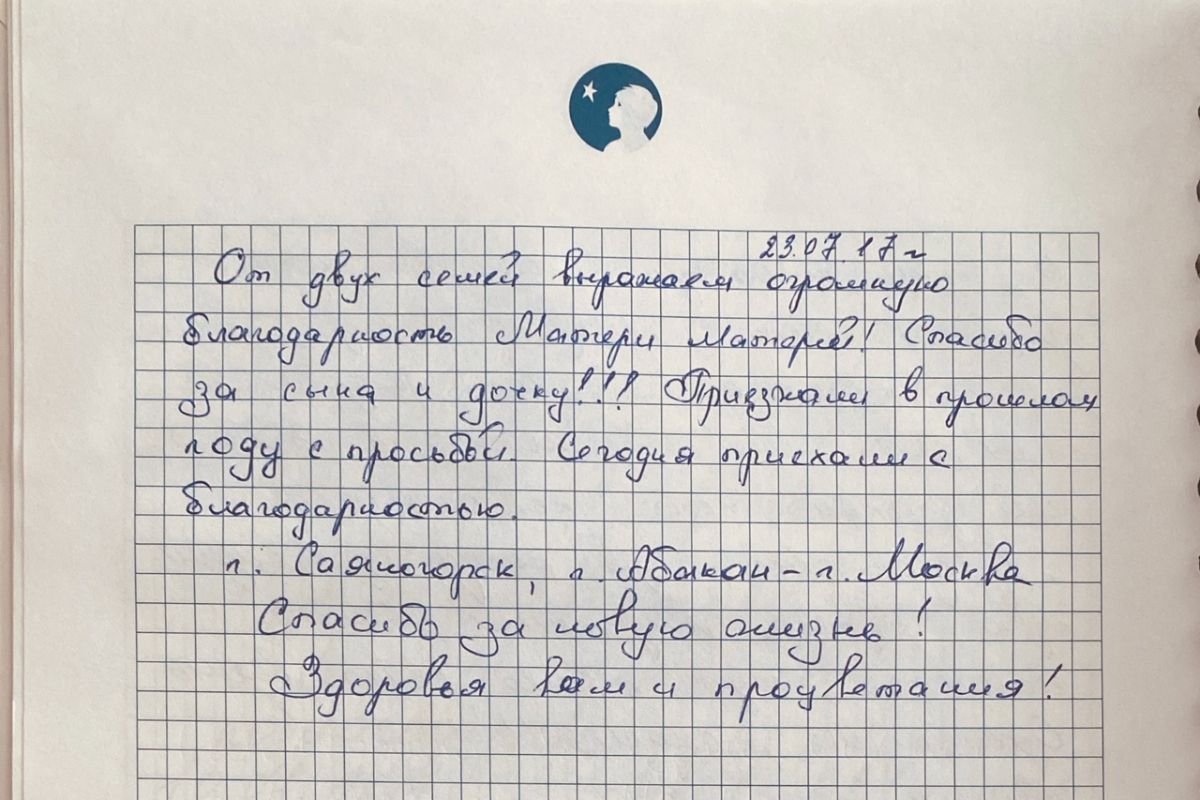 23.07.17г
От двух семей выражаем огромную
благодарность Матери Матерей! Спасибо
за сына и дочку!!! Приезжали в прошлом
году с просьбой. Сегодня приехали с
благодарностью.
г. Саяногорск, г. Абакан – г. Москва
Спасибо за новую жизнь!
Здоровья вам и процветания!